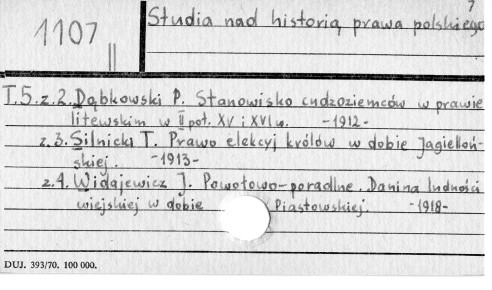 7
1107
II
Studia nad historią prawa polskiego
T.5. z.2. Dąbkowski P. Stanowisko cudzoziemców w prawie
litewskim w II poł. XV i XVI w. -1912-
z.3. Silnicki T. Prawo elekcyj królów w dobie Jagielloń-
skiej. -1913-
z.4. Widajewicz J. Powołowo-poradlne. Danina ludności
wiejskiej w dobie Piastowskiej. -1918-
DUJ. 393/70. 100 000.